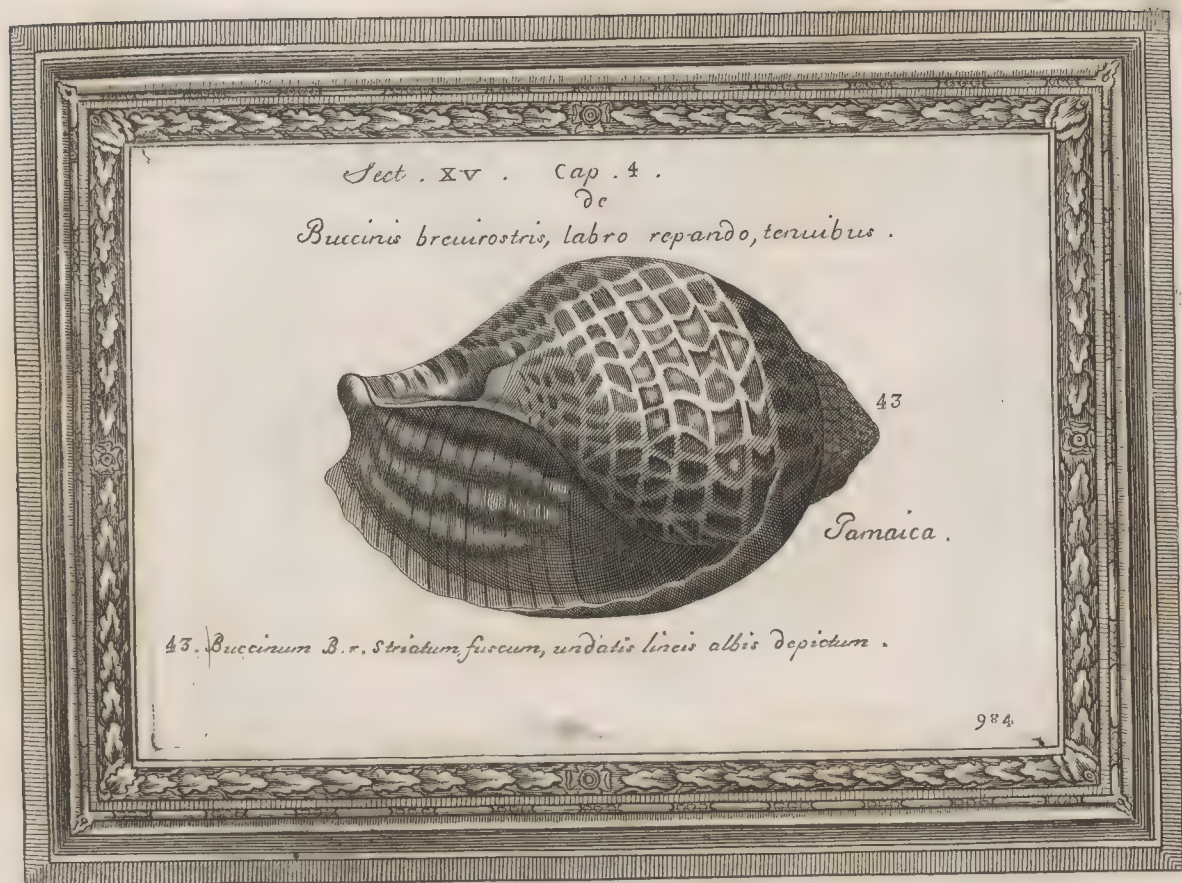 Sect . XV . Cap . 4 .
de
Buccinis breuirostris, labro repando, tenuibus .
43
Jamaica .
43. Buccinum B. r. Striatum fuscum, undatis lineis albis depictum .
984